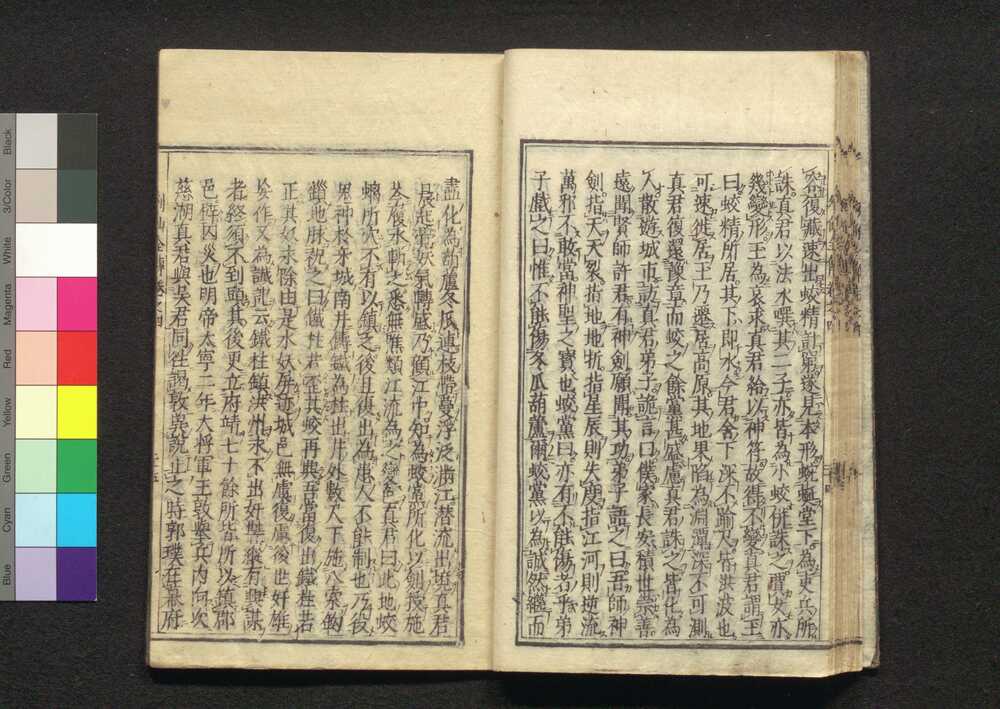 君復藏速出蛟精計窮遂見本形蜿蜒堂下為吏兵所
誅真君以法水噀其二子亦皆為小蛟併誅之賈女亦
幾變形王為哀求真君給以神符故得不變真君謂王
曰蛟精所居其下即水今君舍下深不踰尺皆洪波也
可速徙居王乃遷居高原其地果陷為淵潭深不可測
真君復還豫章而蛟之餘黨甚盛慮真君誅之皆化為
人散遊城市訪真君弟子詭言曰僕家長安積世崇善
遠聞賢師許君有神劍願聞其功弟子語之曰吾師神
劍指天天裂指地地折指星辰則失度指江河則逆流
萬邪不敢當神聖之寶也蛟黨曰亦有不能傷者乎弟
子戲之曰惟不能傷冬瓜葫蘆爾蛟黨以為誠然繼而
盡化為葫蘆冬瓜連枝帶蔓浮泛滿江潛流出境真君
晨起覺妖氣轉盛乃顧江中知為蛟黨所化以劍授施
岑履水斬之悉無噍類江流為之變色真君曰此地蛟
螭所穴不有以鎮之後且復出為患人不能制也乃役
鬼神於牙城南井鑄鐵為柱出井外數尺下施八索鉤
鎖地脉祝之曰鐵柱若亞其蛟再興吾當復出鐵柱若
正其妖永除由是水妖屏迹城邑無虞復慮後世奸雄
妄作又為讖記云鐵柱鎮洪州永不出奸雄縱有興謀
者終須不到頭其後更立府靖七十餘所皆所以鎮郡
邑辟凶災也明帝太寧二年大將軍王敦舉兵內向次
慈湖真君與吳君同往謁敦冀說止之時郭璞在幕府